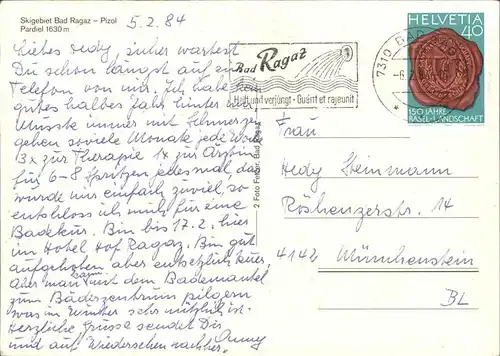 Skigebiet Bad Ragaz – Pizol
Pardiel 1630 m
5.2.84
Liebes Hedy, sicher wartest
Du schon längst auf ein
Telefon von mir. Ich habe kein
gutes halbes Jahr hinter
Musste immer mit Schmerzen
gehen soviele Monate jede Woche
3x zur Therapie 1x zur Ärztin
für 6-8 Spritzen jedesmal, das
wurde mir einfach zuviel, so
entschloss ich mich für eine
Badekur. Bin bis 17.2. hier
im Hotel Hof Ragaz. Bin gut
aufgehoben aber entsetzlich teuer
aber man kann mit dem Bademantel
zum Badezentrum pilgern
was im Winter sehr nützlich ist.
Herzliche Grüsse sendet Dir
und auf Wiedersehen nachher. Anny
2 Foto Fetzer, Bad Ragaz
Bad Ragaz
Heilt und verjüngt - Guérit et rajeunit
7310 BAD RAGAZ
HELVETIA
40
150 JAHRE
BASEL-LANDSCHAFT
Frau
Hedy Steinmann
Röschenzerstr. 14
4142 Münchenstein
BL